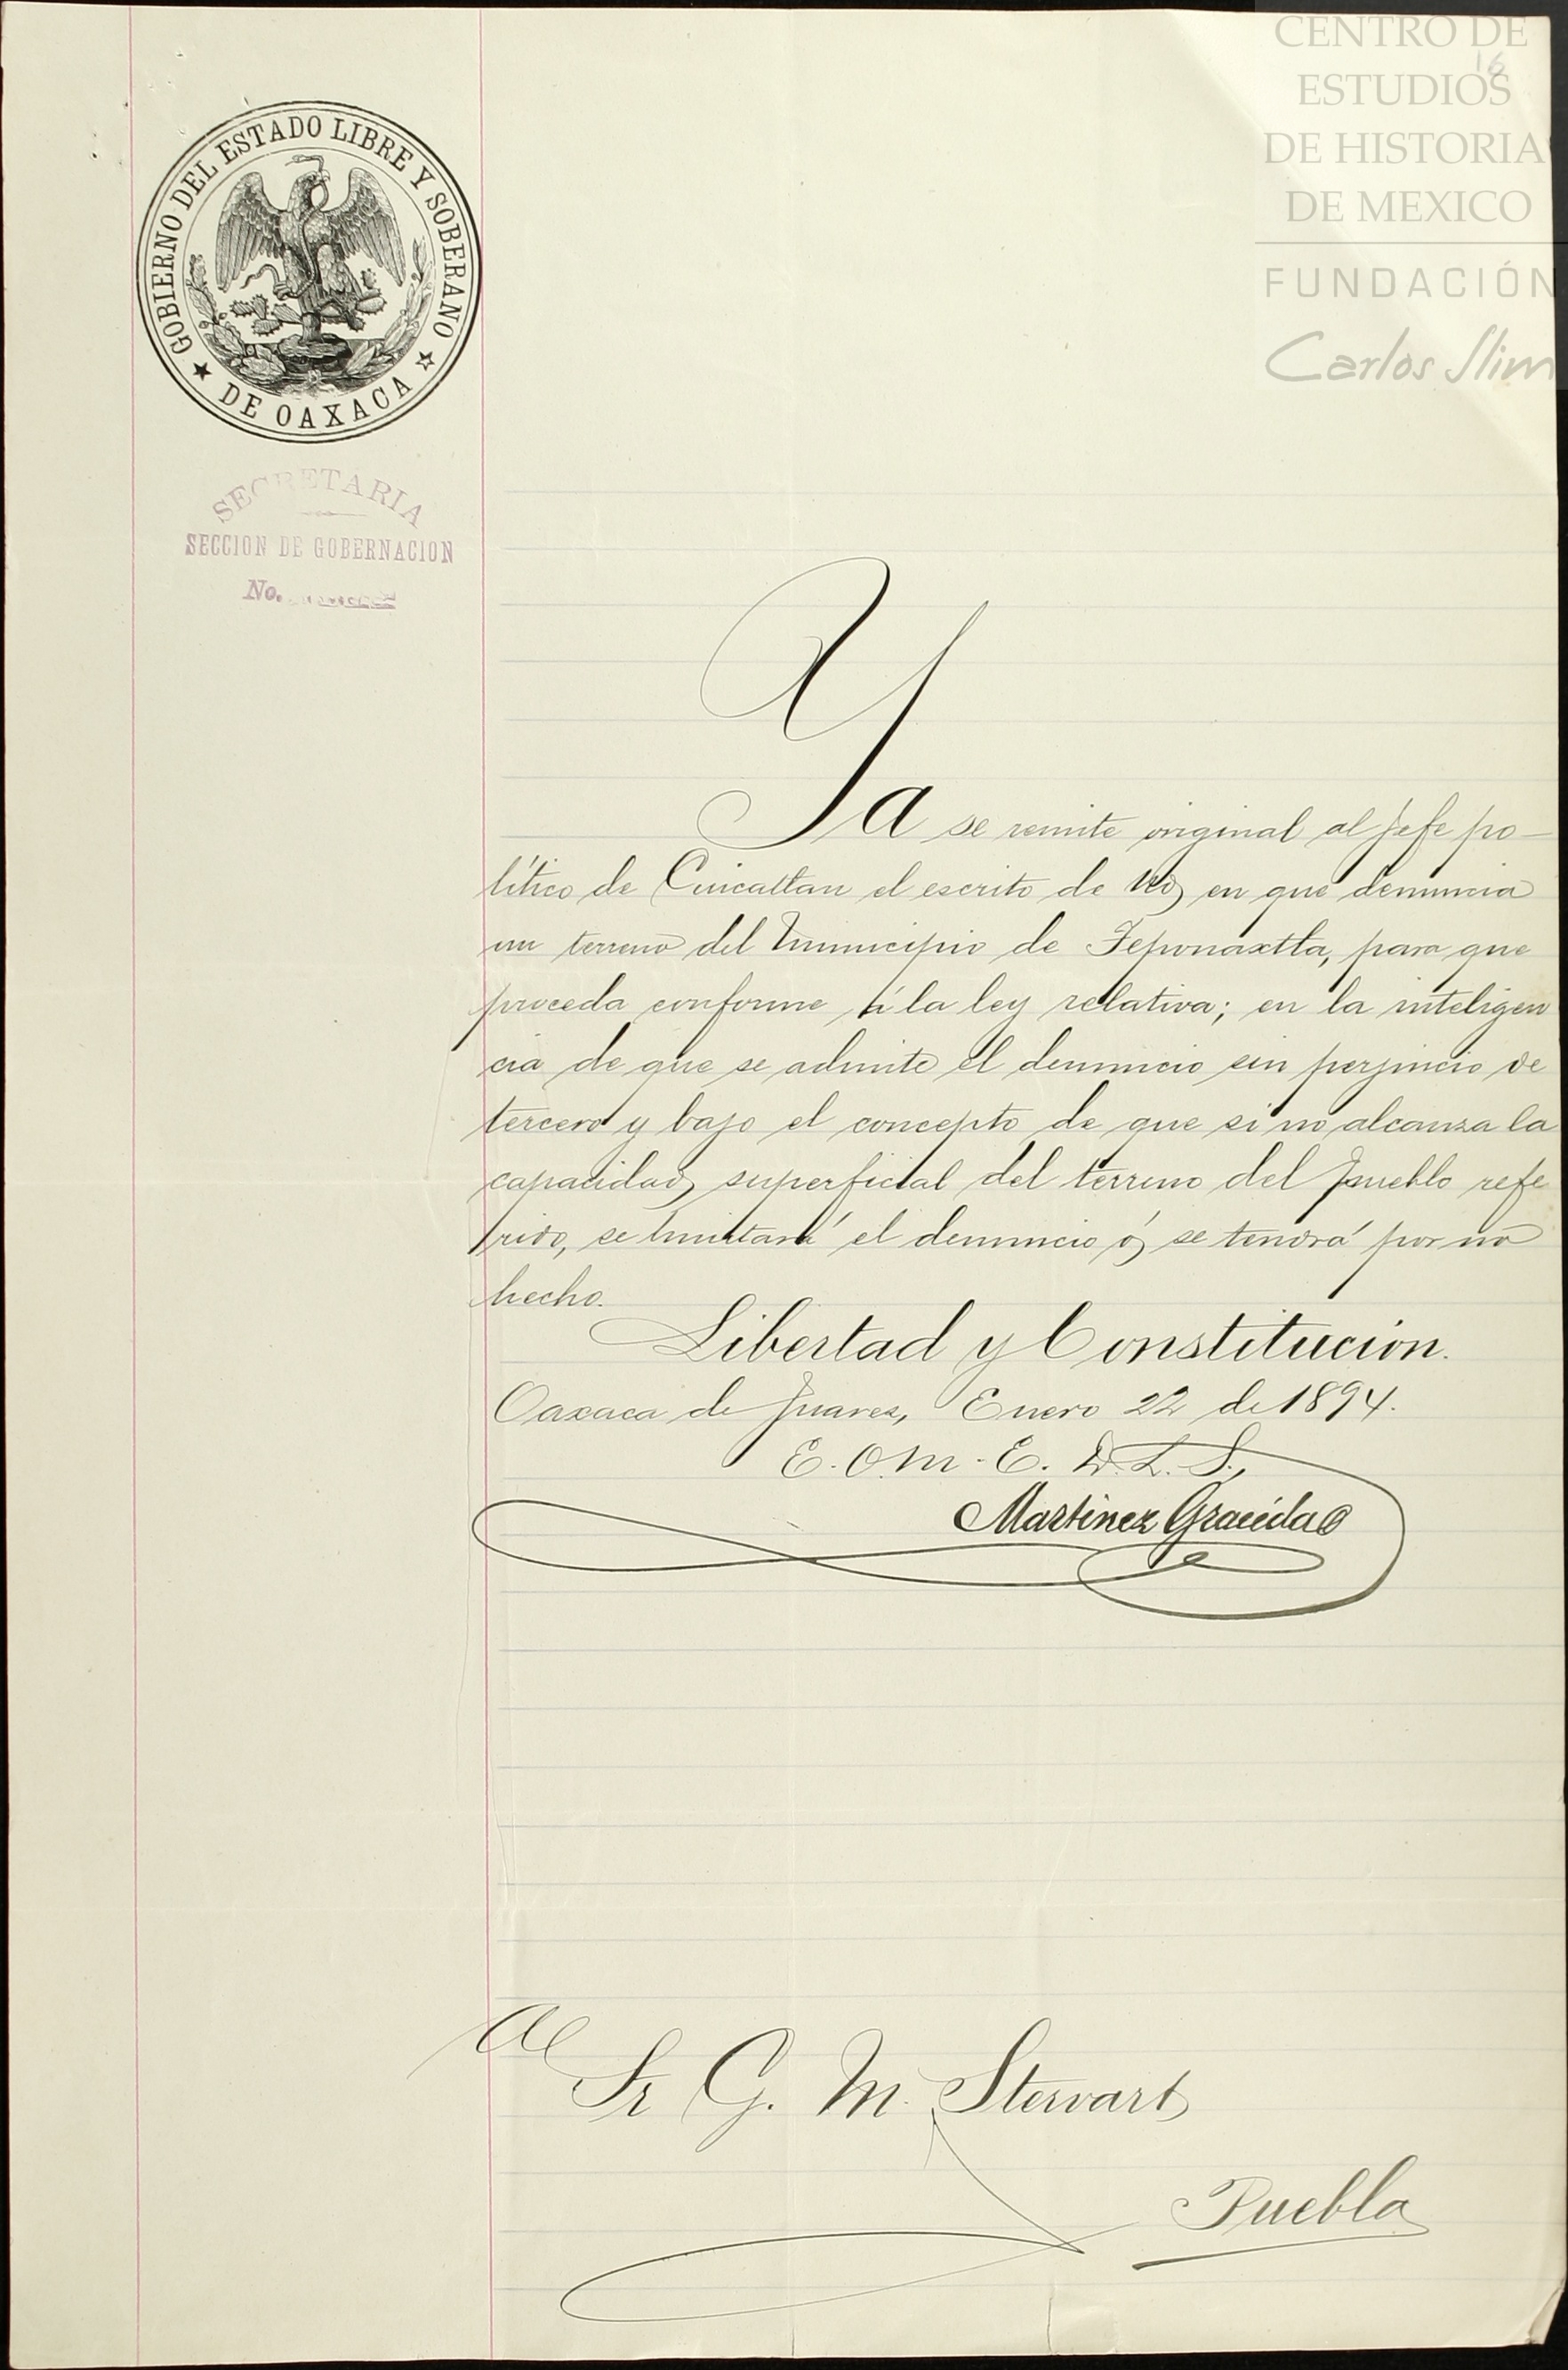 CENTRO DE
ESTUDIOS
DE HISTORIA
DE MEXICO
FUNDACIÓN
Carlos Slim
16
GOBIERNO DEL ESTADO LIBRE Y SOBERANO
DE OAXACA
SECRETARIA
SECCION DE GOBERNACION
No.
Ya se remite original al Jefe po-
lítico de Cuicatlan el escrito de Ud, en que denuncia
un terreno del Municipio de Teponaxtla, para que
proceda conforme á la ley relativa; en la inteligen
cia de que se admite el denuncio sin perjuicio de
tercero y bajo el concepto de que si no alcanza la
capacidad superficial del terreno del pueblo refe
rido, se limitará el denuncio ó se tendrá por no
hecho.
Libertad y Constitucion.
Oaxaca de Juarez, Enero 22 de 1894.
E. O. M. E. D. L. S.,
Martinez Gracida
Al
Sr G. M. Stewart
Puebla